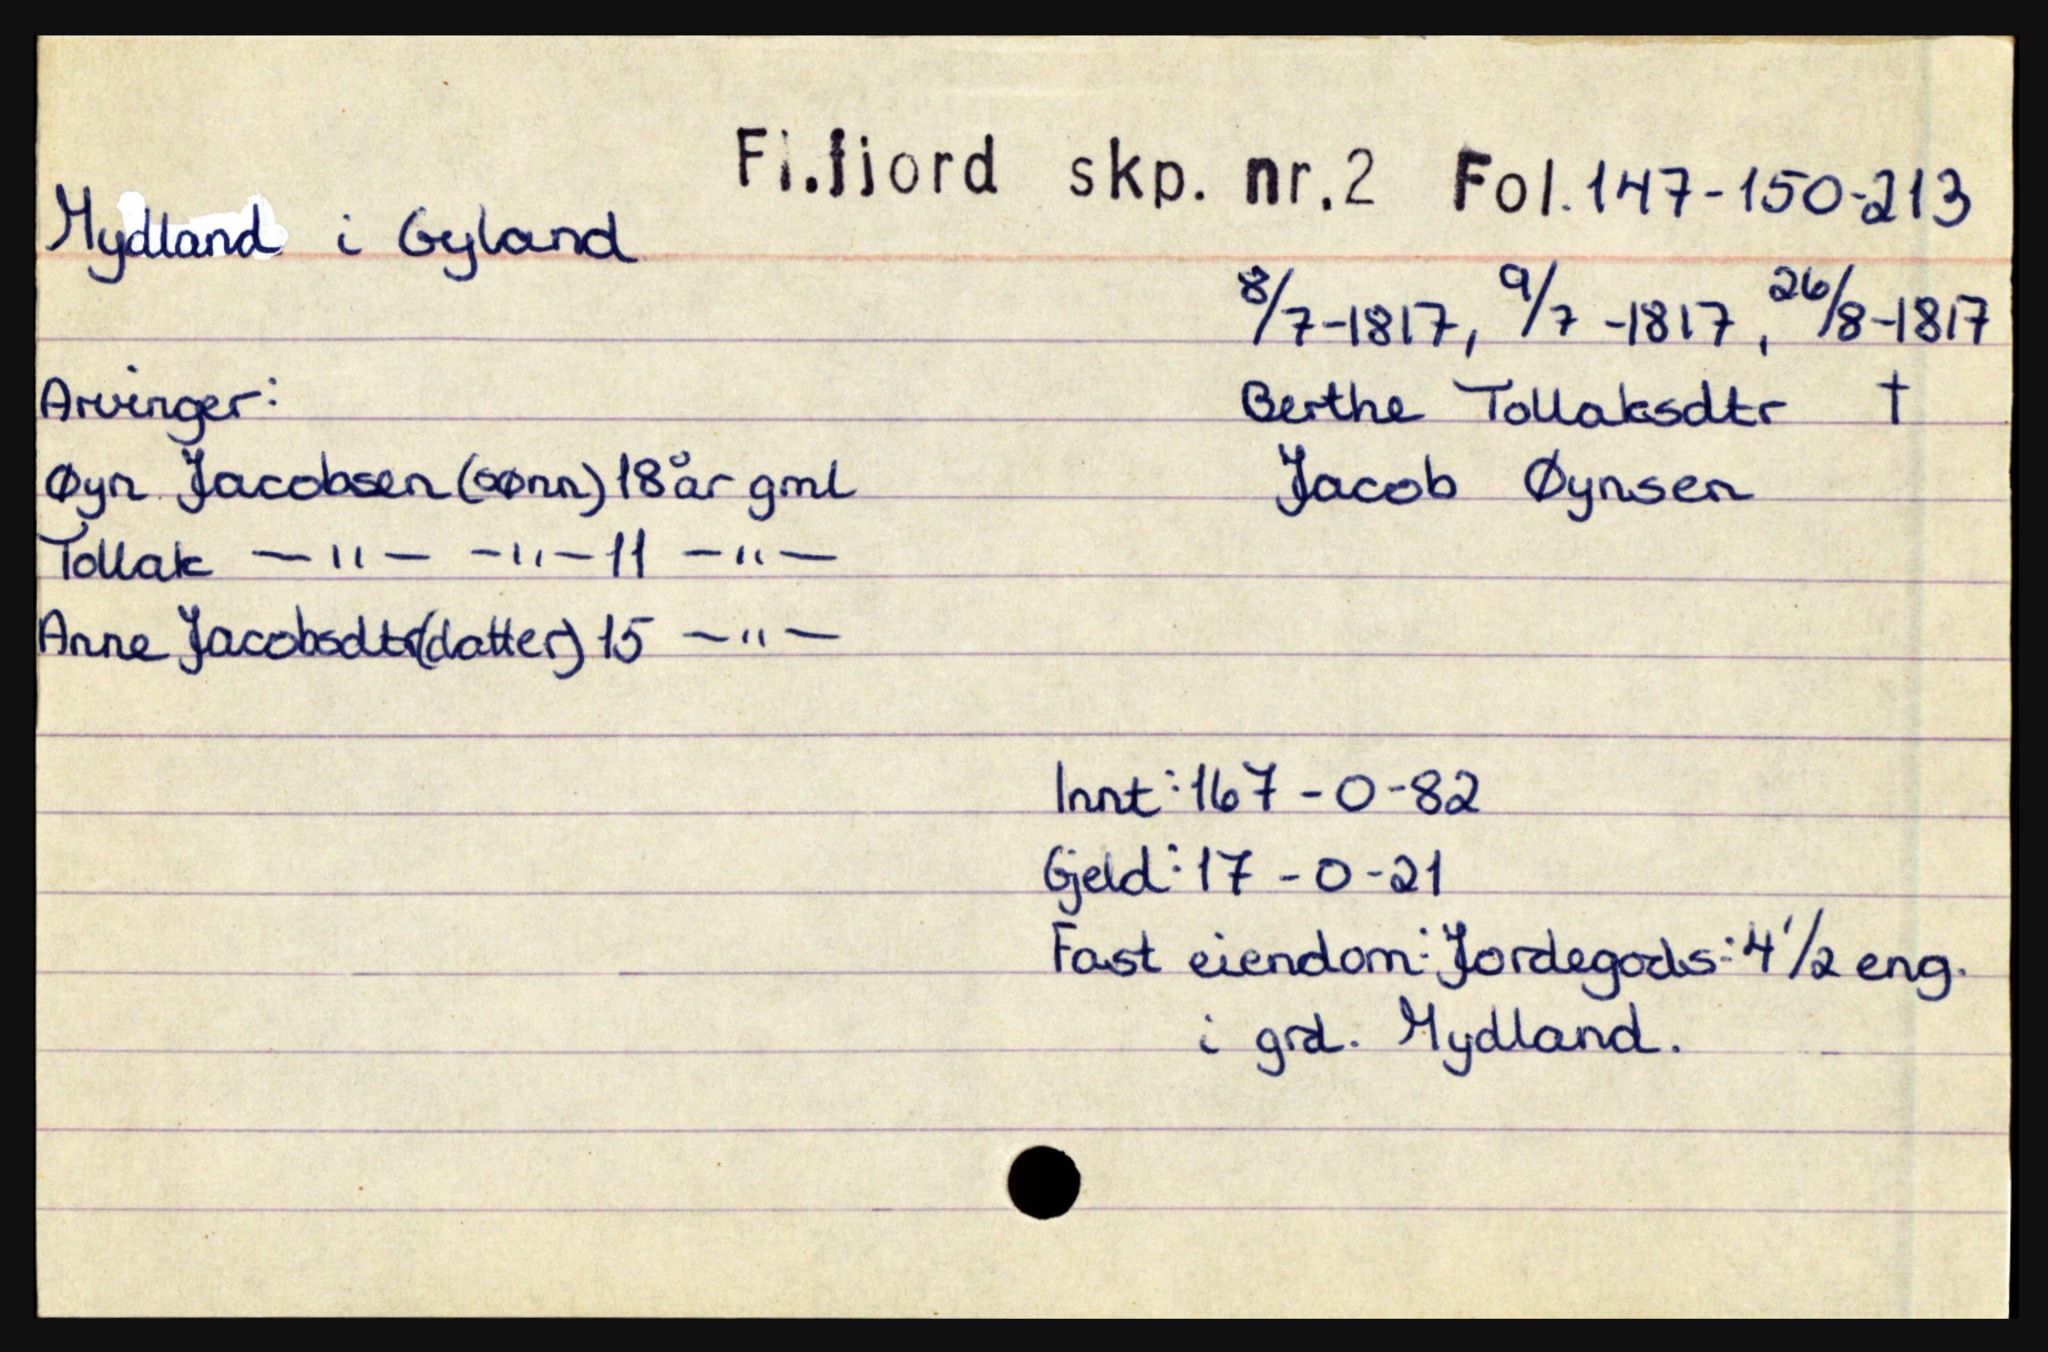 Fl.fjord skp. nr.2 Fol.147-150-213
Mydland i Gyland
8/7-1817, 9/7-1817, 26/8-1817
Arvinger: Berthe Tollaksdtr †
Øyn Jacobsen (sønn) 18 år gml Jacob Øynsen
Tollak —"— —"— 11 —"—
Anne Jacobsdtr (datter) 15 —"—
Innt: 167-0-82
Gjeld: 17-0-21
Fast eiendom: Jordegods: 4 1/2 eng.
i grd. Mydland.